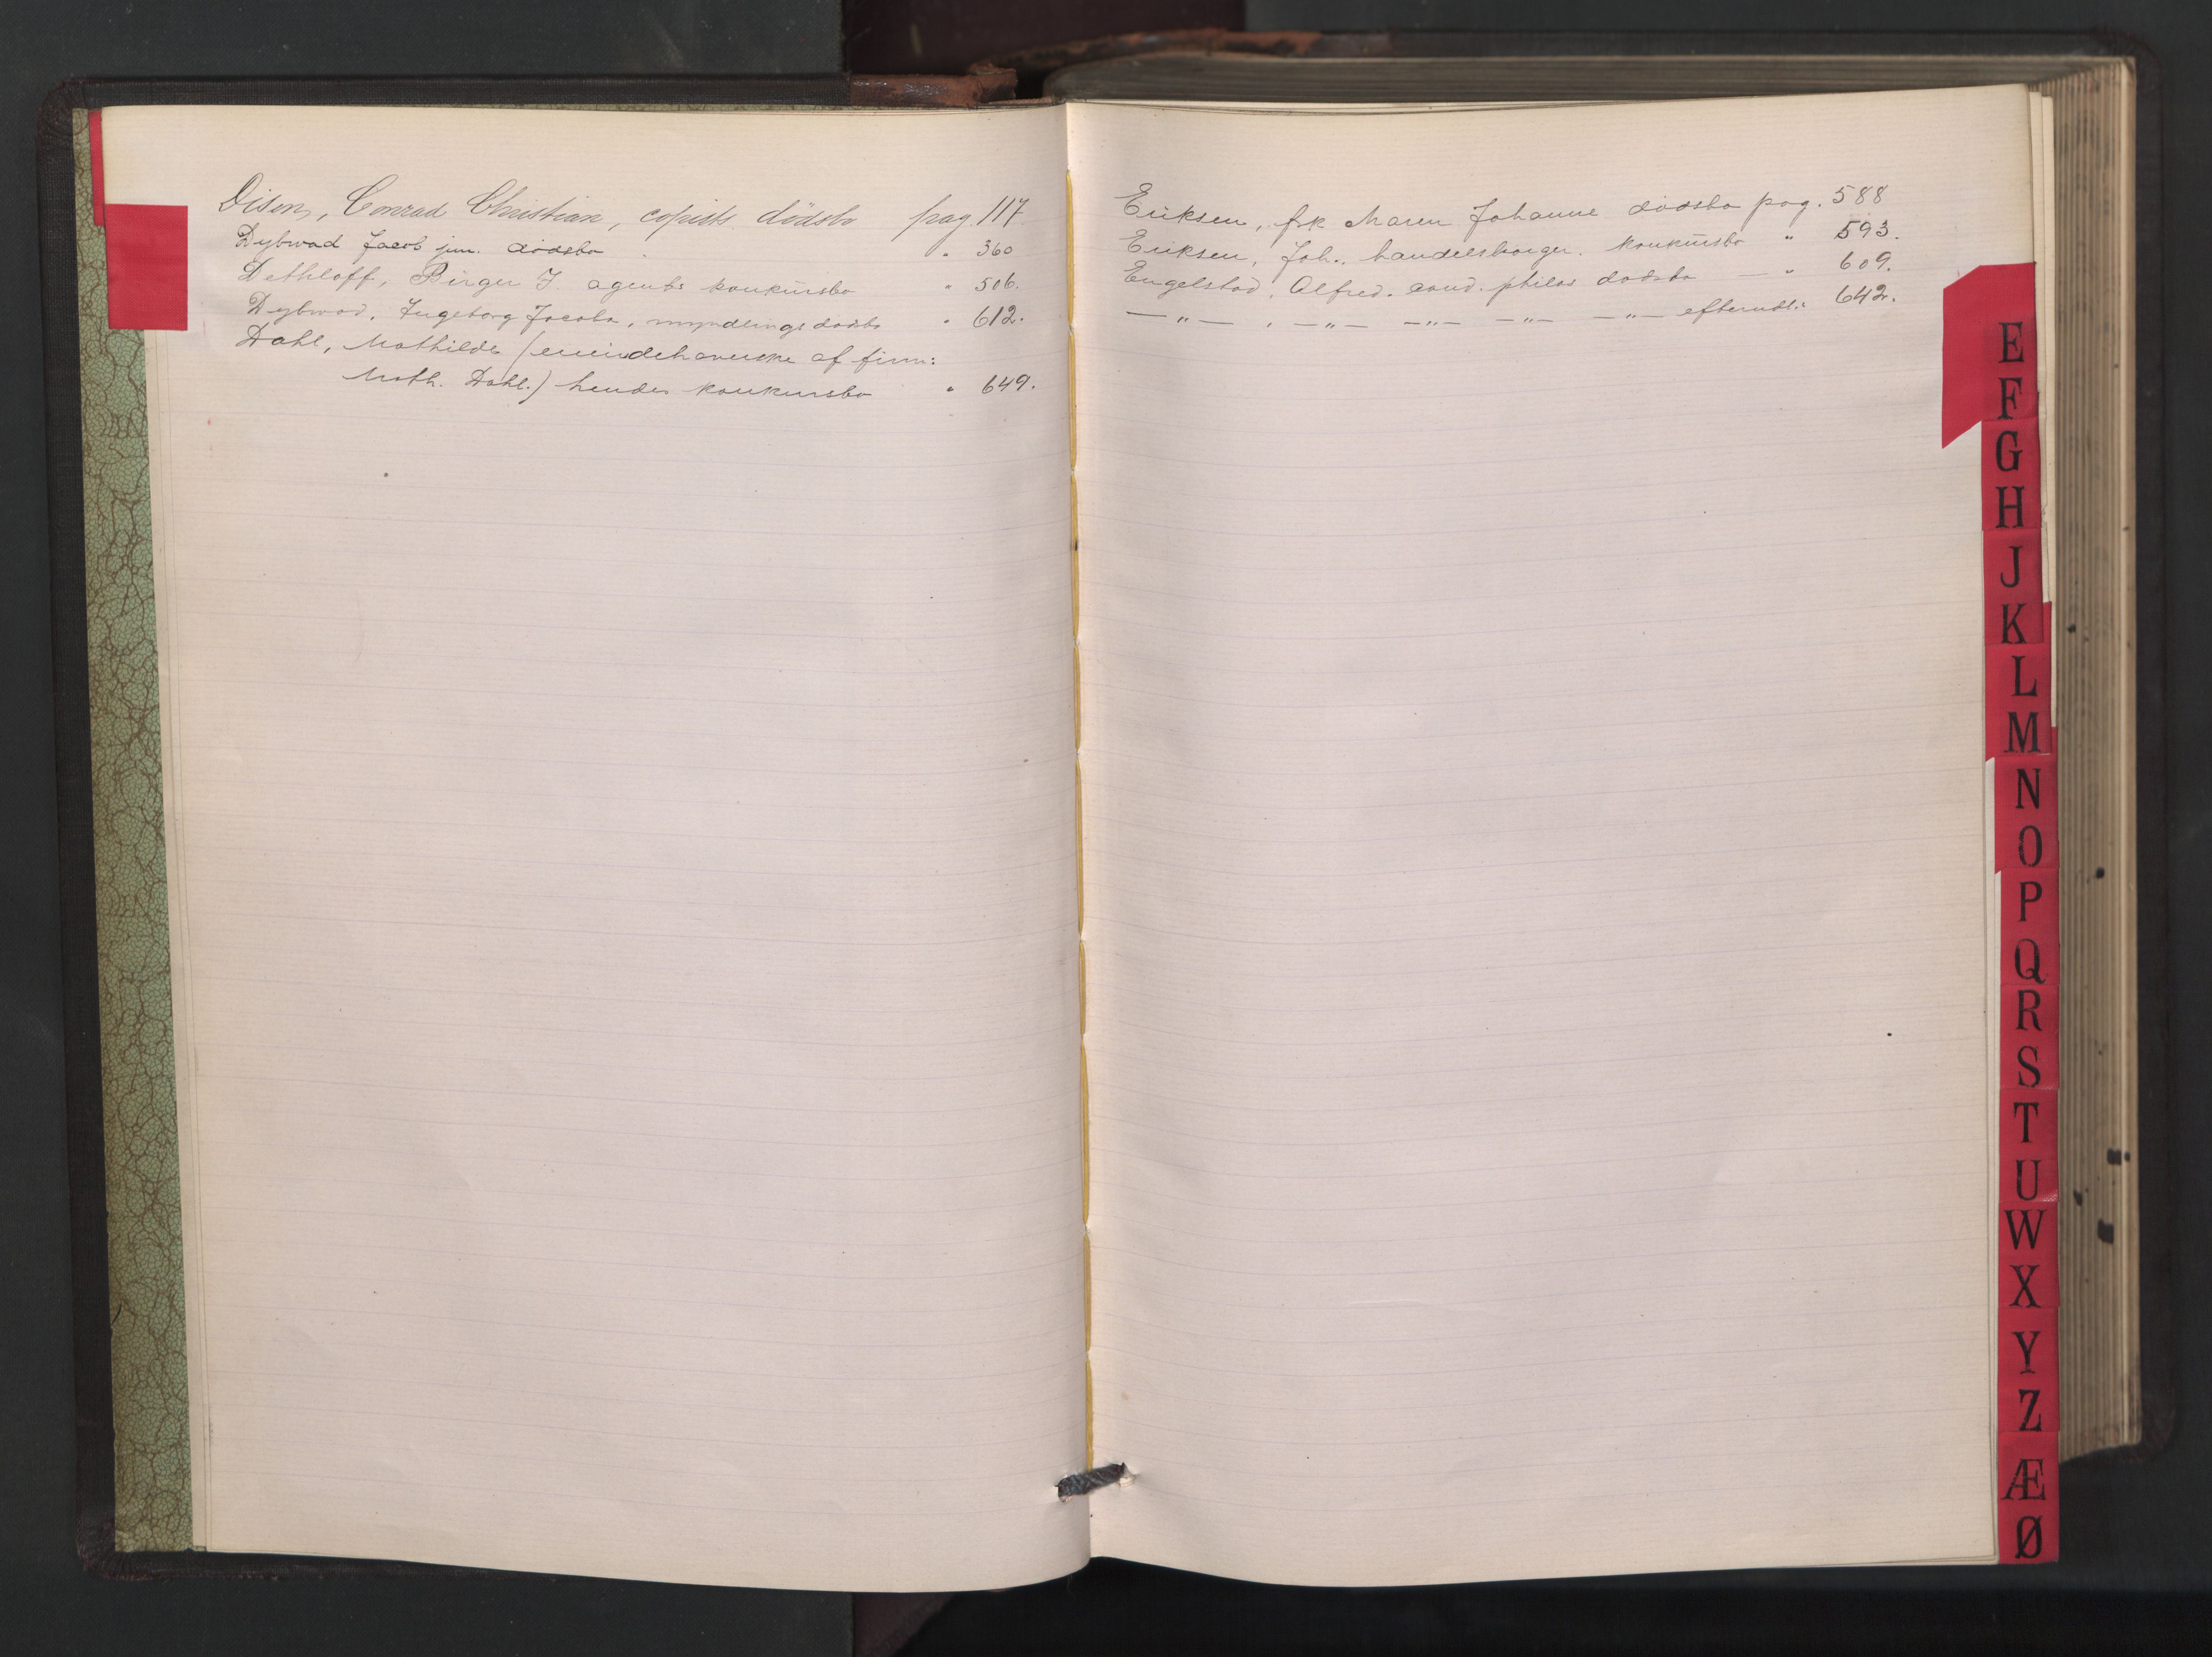 Disen, Conrad Christian, copists dödsbo pag. 117
Dybwad Jacob jun. dödsbo " 360
Dethloff, Birger J. agents konkursbo " 506.
Dybwad, Ingeborg Jacoba, myndlings dødsbo " 612.
Dahl, Mathilde (eneindehaverske af firm:
Math. Dahl.) hendes konkursbo " 649.
Eriksen, frk Maren Johanne dødsbo pag. 588
Eriksen, Joh., handelsborger. konkursbo " 593.
Engelstad, Alfred. cand. philos dødsbo — " 609.
— " — , — " — — " — — " — — " — 642.
E
F
G
H
J
K
L
M
N
O
P
Q
R
S
T
U
W
X
Y
Z
Æ
Ø